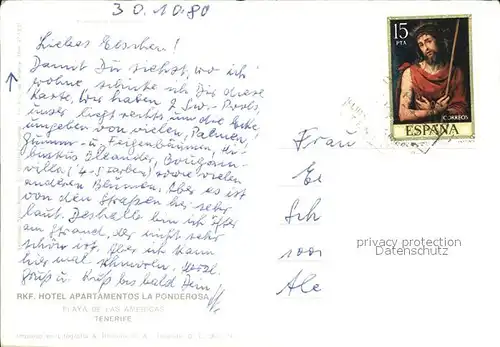 30.10.80
Liebes Evchen!
Damit Du siehst, wo ich
wohne schicke ich Dir diese
Karte. Wir haben 2 Sw.-Pools,
unser liegt rechts um die Ecke,
umgeben von vielen Palmen,
Gummi- u. Feigenbäumen, Hi-
biskus Oleander, Bougain-
villa (4-5 Farben) sowie vielen
anderen Blumen. Aber es ist
von den Straßen her sehr
laut. Deshalb bin ich öfter
am Strand, der nicht sehr
schön ist. Aber ich kann
hier mal schnorcheln. Herzl.
Gruß u. Kuß bis bald Dein
RKF. HOTEL APARTAMENTOS LA PONDEROSA
PLAYA DE LAS AMERICAS
TENERIFE
15
PTA
CORREOS
ESPAÑA
Frau
E
Sch
100
Ale
privacy protection
Datenschutz